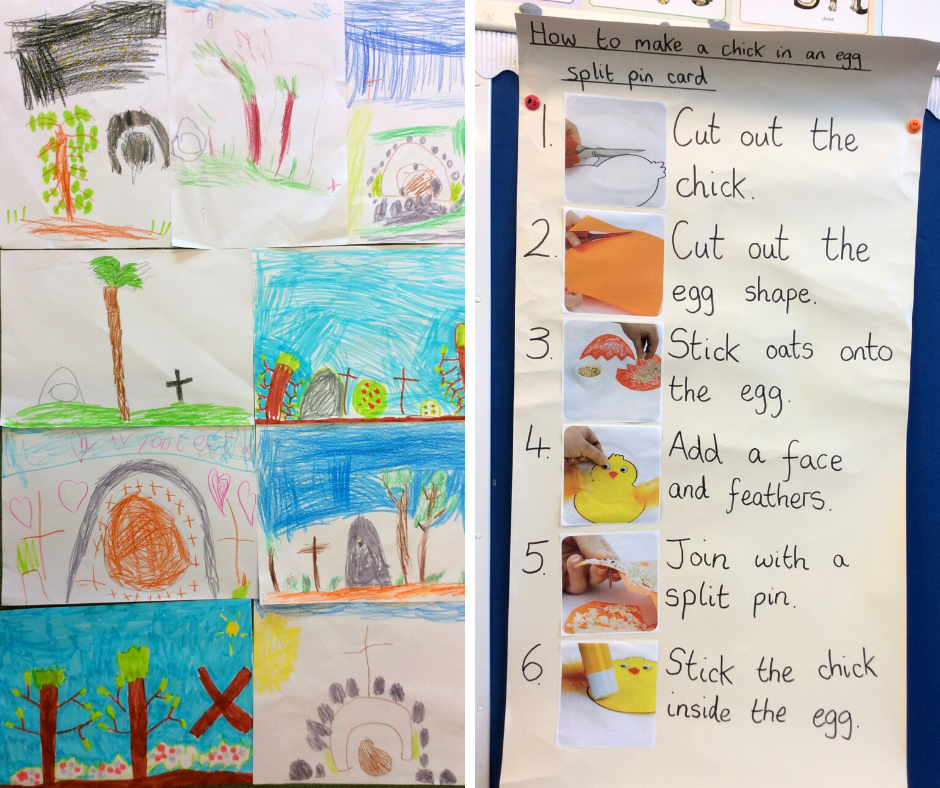 How to make a chick in an egg
split pin card
1. Cut out the
chick.
2. Cut out the
egg shape.
3. Stick oats onto
the egg.
4. Add a face
and feathers.
5. Join with a
split pin.
6. Stick the chick
inside the egg.